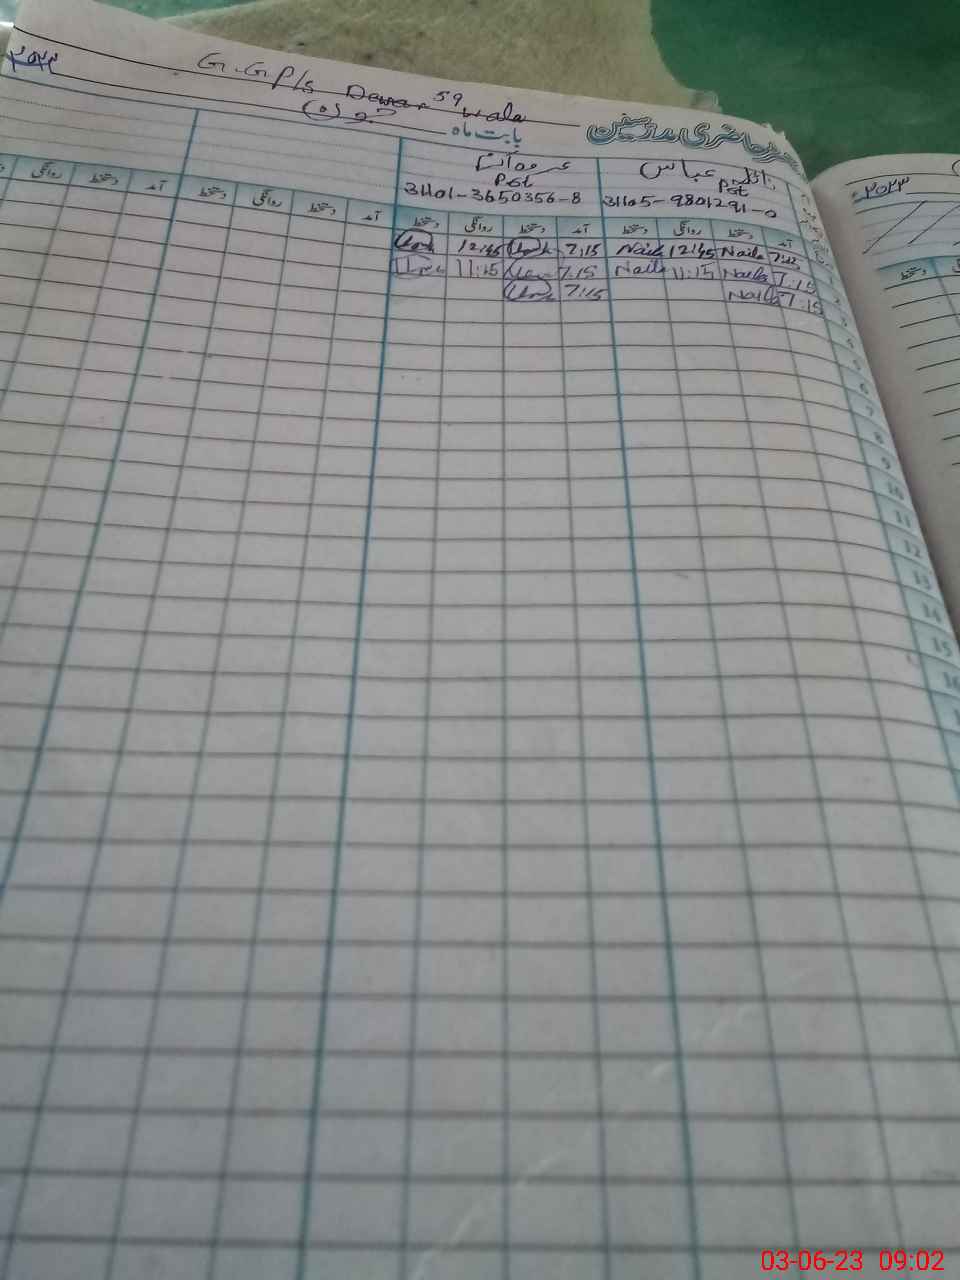 G.GP/s Dewar 59 wala
رجسٹر حاضری مدرسین
بابت ماہ جون
۲۰۲۳
نائلہ عباس
PST
31105-9801291-0
عروہ آئزہ
PST
31101-3650356-8
آمد دستخط روانگی دستخط آمد دستخط روانگی دستخط آمد دستخط روانگی دستخط آمد دستخط روانگی
1 7:15 Naila 12:45 Naila 7:15 12:45
2 7:15 Naila 11:15 Naila 7:15 11:15
3 7:15 Naila 7:15
4
5
6
7
8
9
10
11
12
13
14
15
16
۲۰۲۳
روانگی دستخط
03-06-23 09:02